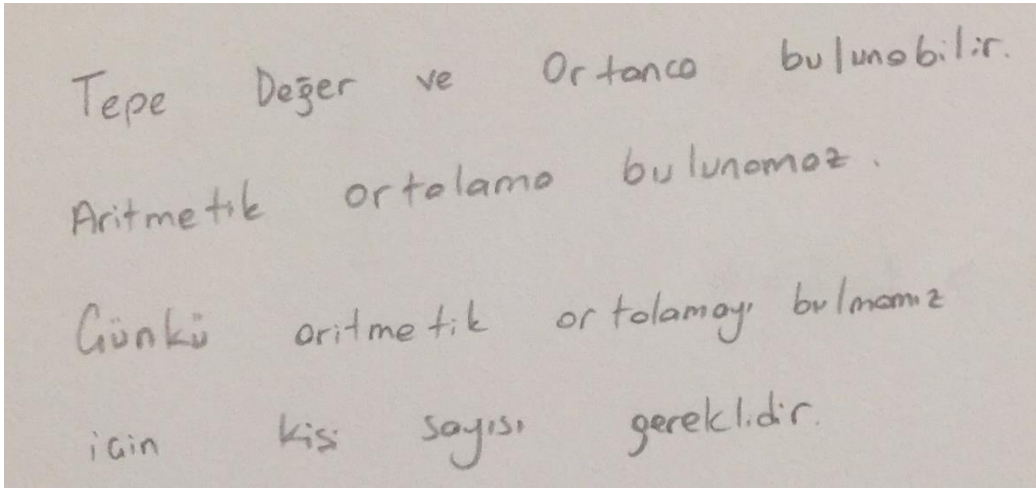 Tepe Değer ve Ortanca bulunabilir.
Aritmetik ortalama bulunamaz.
Günkü aritmetik ortalamayı bulmamız
için kişi sayısı gereklidir.